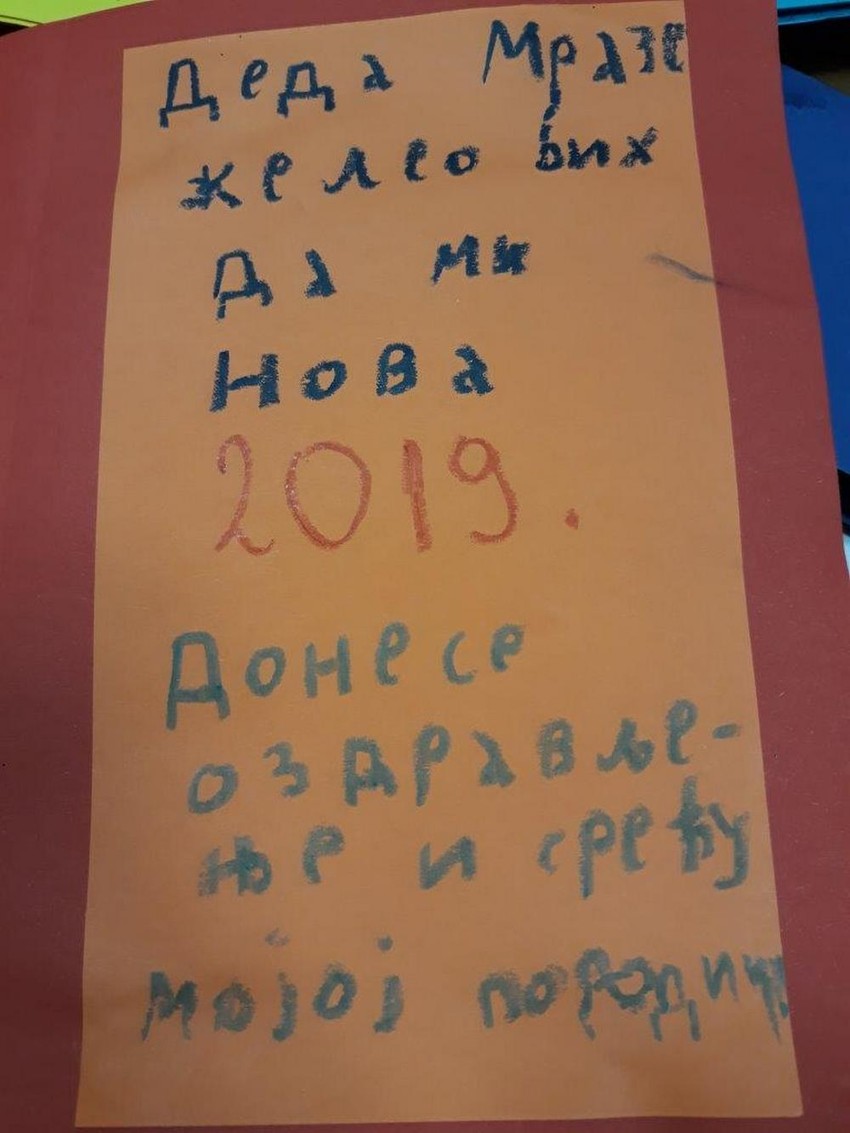 Деда Мразе
желео бих
Да ми
Нова
2019.
Донесе
оздравље-
ње и срећу
мојој породици!